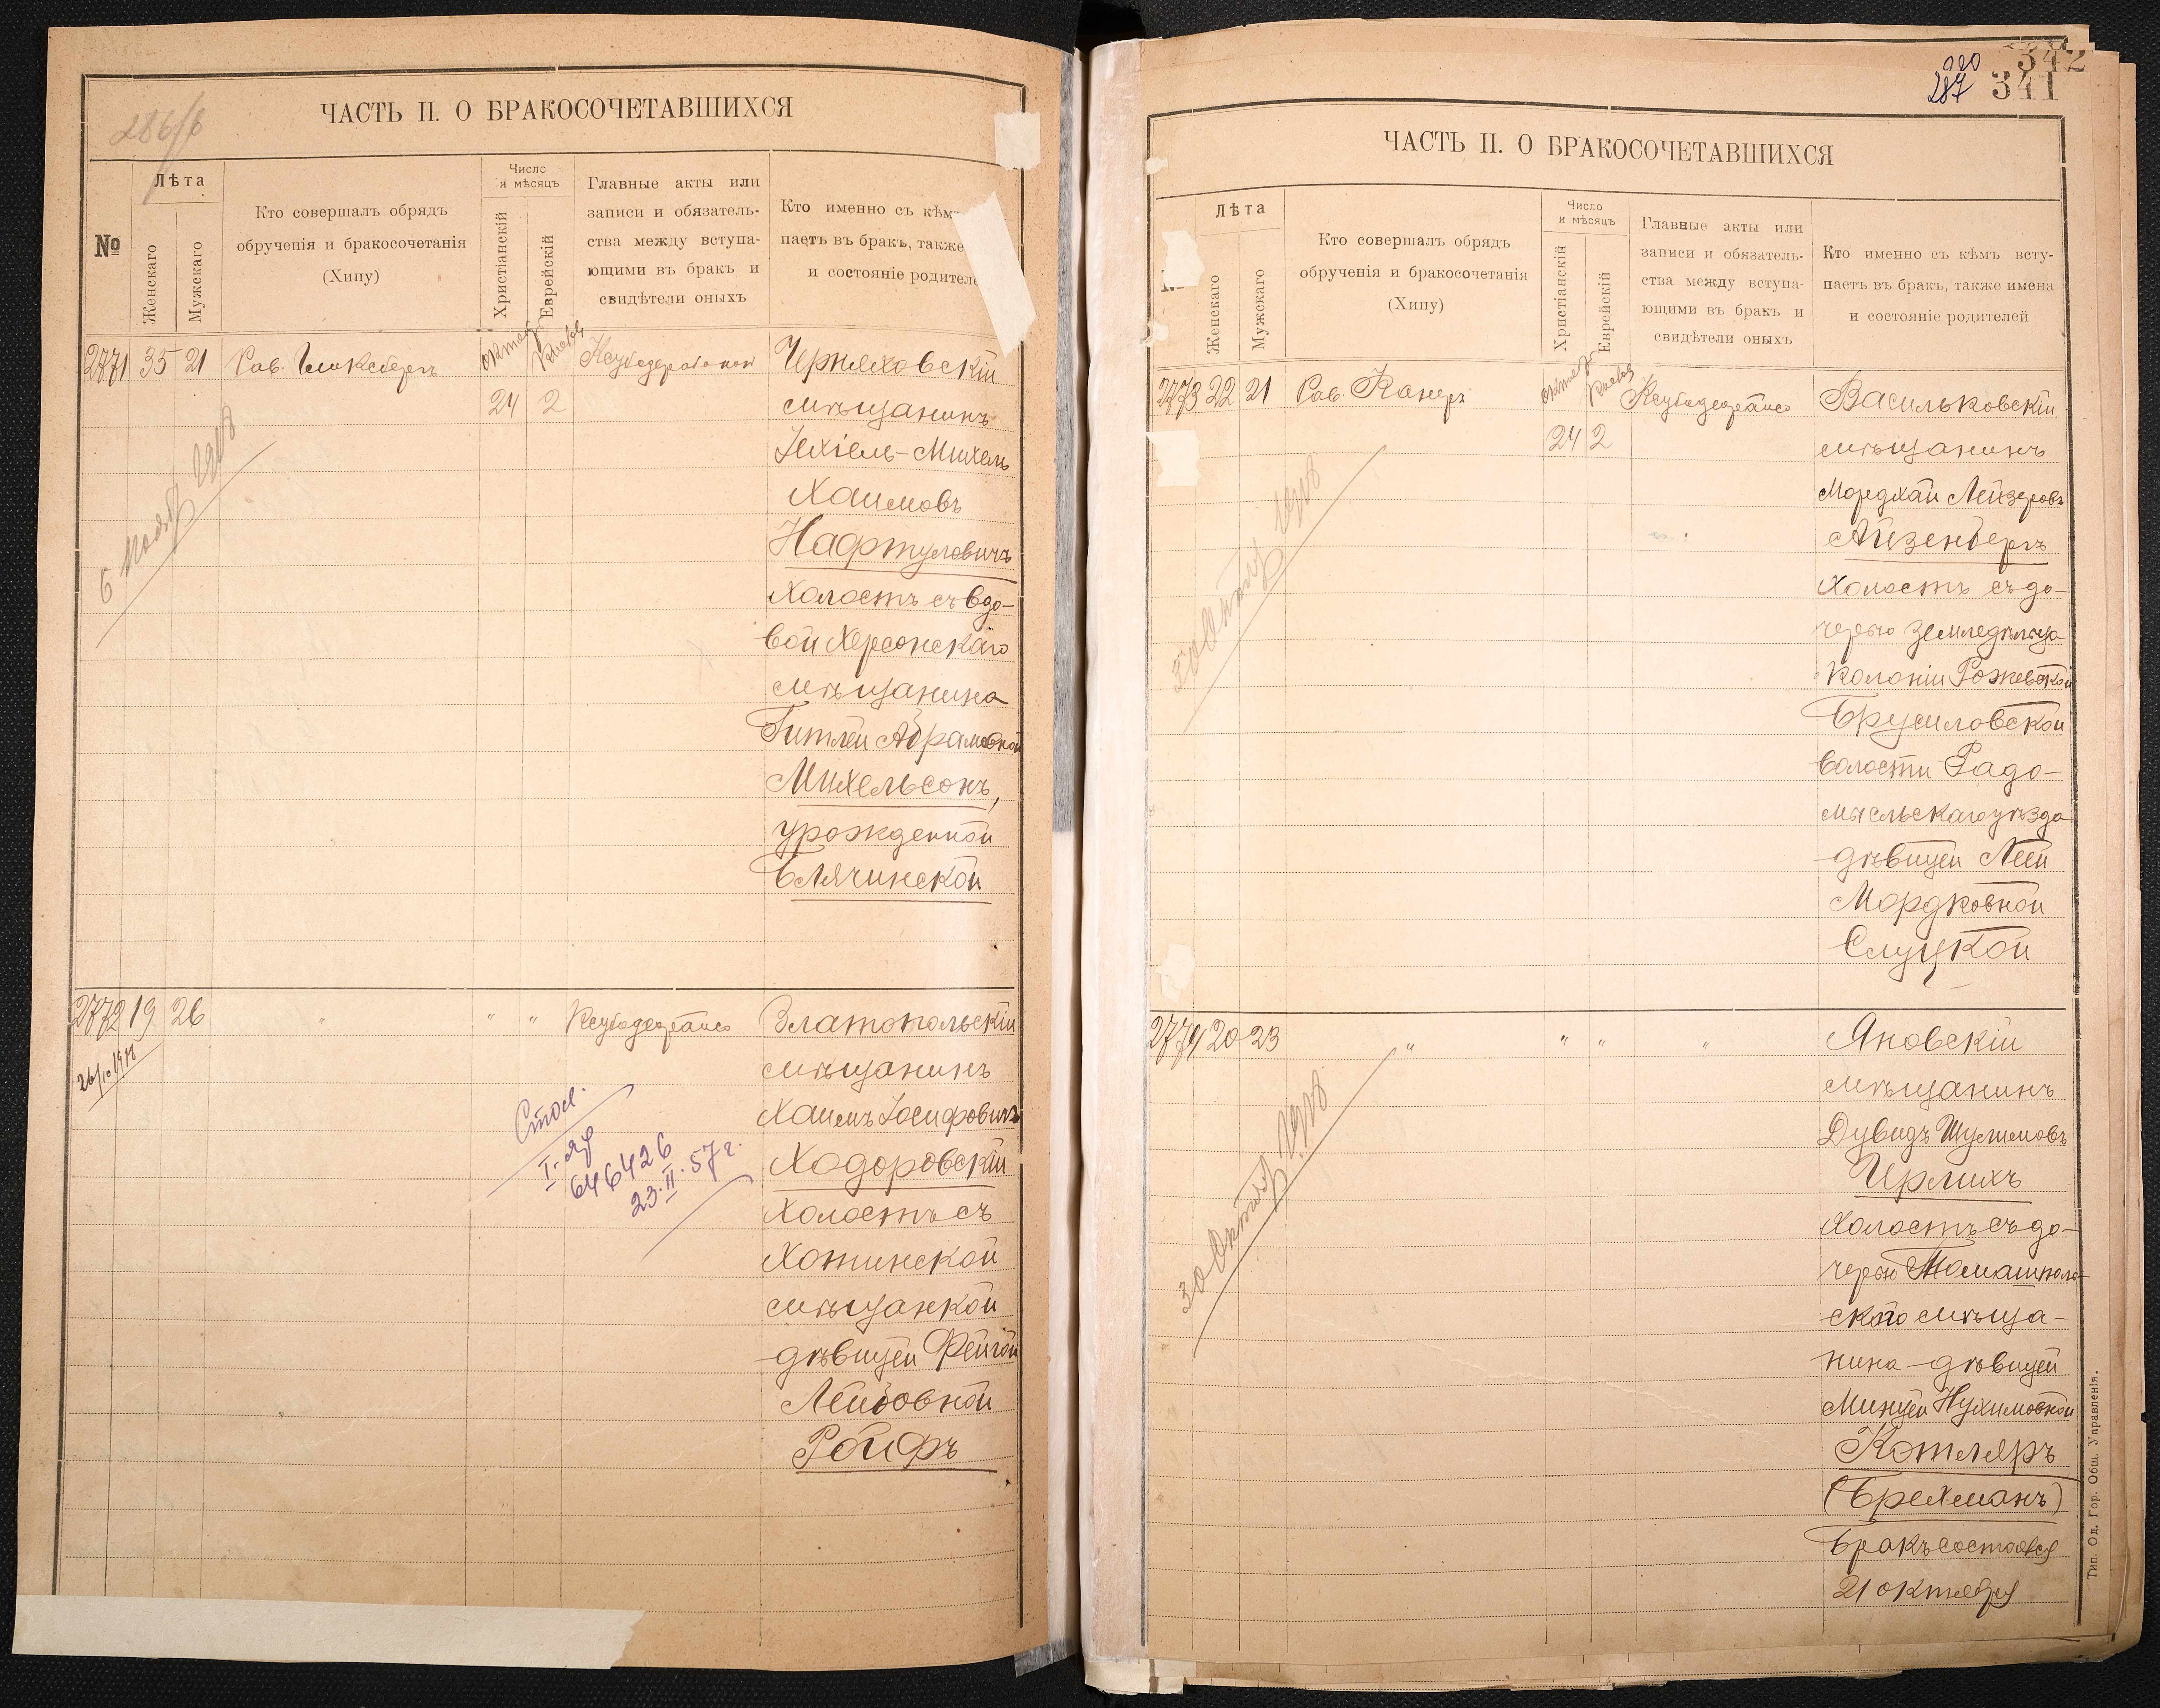 286/б
ЧАСТЬ II. О БРАКОСОЧЕТАВШИХСЯ
№
Лѣта
Женскаго
Мужескаго
Кто совершалъ обрядъ
обрученія и бракосочетанія
(Хипу)
Число
и мѣсяцъ
Христіанскій
Еврейскій
Главные акты или
записи и обязатель-
ства между вступа-
ющими въ бракъ и
свидѣтели оныхъ
Кто именно съ кѣмъ
паетъ въ бракъ, также
и состояніе родителе
2771 35 21 Рав.
24 2
Черняховскій
мѣщанинъ
Іехіель-Михель
Хаимовъ
Нафтуловичъ
холостъ съ вдо-
вой Херсонскаго
мѣщанина
Гитлей Абрамовной
Михельсонъ,
урожденной
Блячинской
2772 19 26 " " "
Златопольскій
мѣщанинъ
Хаимъ Іосифовичъ
Ходоровскій
холостъ съ
Хотинской
мѣщанкой
дѣвицей Фейгой
Лейбовной
Ройфъ
26/10 1918
I-
646426
23.II.57г.
287
341
342
ЧАСТЬ II. О БРАКОСОЧЕТАВШИХСЯ
Лѣта
Женскаго
Мужескаго
Кто совершалъ обрядъ
обрученія и бракосочетанія
(Хипу)
Число
и мѣсяцъ
Христіанскій
Еврейскій
Главные акты или
записи и обязатель-
ства между вступа-
ющими въ бракъ и
свидѣтели оныхъ
Кто именно съ кѣмъ всту-
паетъ въ бракъ, также имена
и состояніе родителей
2773 22 21 Рав. Канеръ
24 2
Васильковскій
мѣщанинъ
Мордхай Лейзеровъ
Айзенбергъ
холостъ съ до-
черью земледѣльца
колоніи Рожевской
Брусиловской
волости Радо-
мысльскаго уѣзда
дѣвицей Леей
Мордковной
Слуцкой
2774 20 23 " " " "
Яновскій
мѣщанинъ
Дувидъ Шулимовъ
Ирлихъ
холостъ съ до-
черью Томашполь-
скаго мѣща-
нина-дѣвицей
Минцей Нухимовной
Котляръ
(Брехманъ)
Бракъ состоялся
21 октября
30 Октября 1918
Тип. Од. Гор. Общ. Управленія.